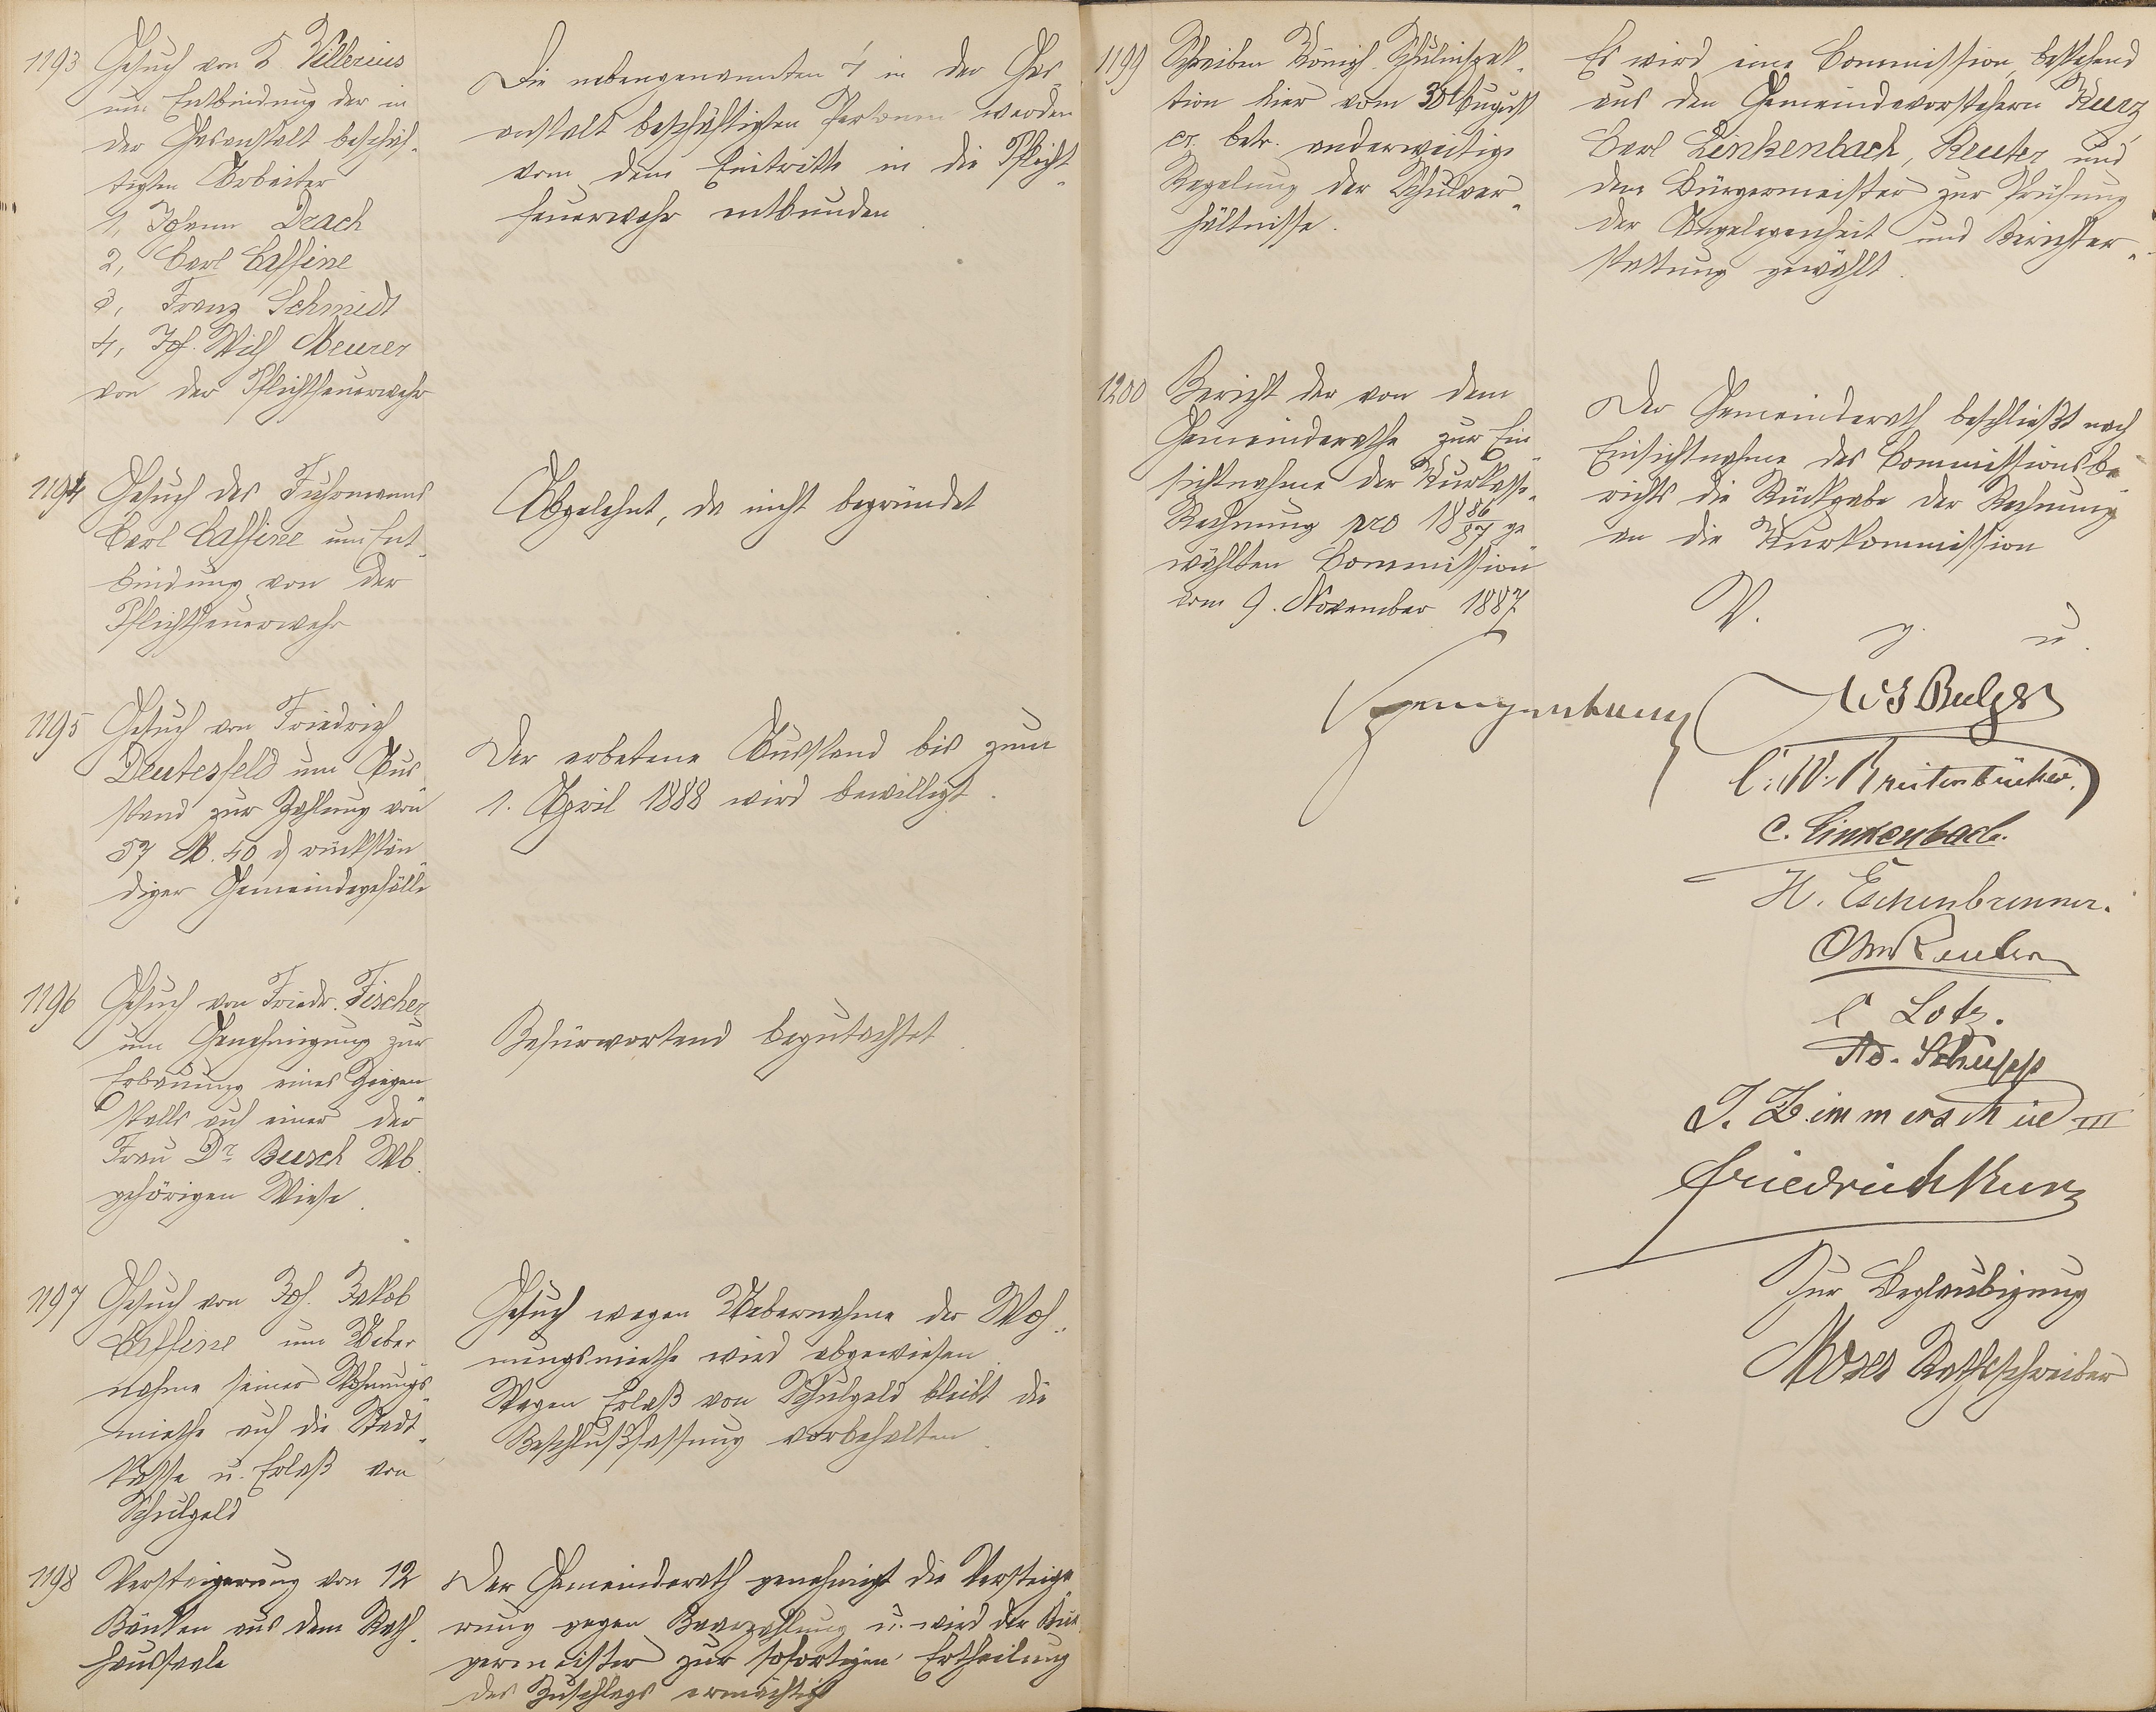 1193 Gesuch von K Villerius
um Entbindung der in
der Gasanstalt beschäf-
tigten Arbeiter
1, Johann Drach
2, Carl Caffine
3, Franz Schmidt
4, Joh. Wilh Meurer
von der Pflichtfeuerwehr
Die nebengenannten 4 in der Gas-
anstalt beschäftigten Personen werden
von dem Eintritte in die Pflicht-
feuerwehr entbunden
1194 Gesuch des Fuhrmanns
Carl Caffine um Ent-
bindung von der
Pflichtfeuerwehr
Abgelehnt, da nicht begründet
1195 Gesuch von Friedrich
Deutesfeld um Aus-
stand zur Zahlung von
57 M. 40 d rückstän
diger Gemeindegefälle
Der erbetene Ausstand bis zum
1. April 1888 wird bewilligt.
1196 Gesuch von Friedr. Fischer
um Genehmigung zur
Erbauung eines Ziegen-
stalls auf einer der
Frau Dr Busch Wb.
gehörigen Wiese.
Befürwortend begutachtet.
1197 Gesuch von Joh. Jakob
Caffine um Ueber
nahme seiner Wohnungs-
miethe auf die Stadt-
kasse u. Erlaß von
Schulgeld
Gesuch wegen Uebernahme der Woh-
nungsmiethe wird abgewiesen.
Wegen Erlaß von Schulgeld bleibt die
Beschlußfassung vorbehalten.
1198 Versteigerung von 12
Bänken aus dem Rath-
haussaale
Der Gemeinderath genehmigt die Versteige-
rung gegen Baarzahlung u. wird der Bür-
germeister zur sofortigen Ertheilung
des Zuschlags ermächtigt
1199 Schreiben Königl Schulinspek-
tion hier vom 30 August
cr. betr. anderweitige
Regelung der Schulver-
hältnisse.
Es wird eine Commission, bestehend
aus den Gemeindevorstehern Kurz,
Carl Linkenbach, Reuter und
dem Bürgermeister zur Prüfung
der Angelegenheit und Berichter-
stattung gewählt.
1200 Bericht der von dem
Gemeinderathe zur Ein-
sichtnahme der Kurkasse-
Rechnung pro 1886/87 ge
wählten Commission
vom 9. November 1887
Der Gemeinderath beschließt nach
Einsichtnahme des Commissionsbe-
richts die Rückgabe der Rechnung
an die Kurkommission
V. g. u.
Spangenberg
C. W. Breitenbücher.
C. Linkenbach.
H. Eschenbrenner.
Chr Reuter
C Lotz.
Ad. Schupp
J. Zimmerschied III
Friedrich Kurz
Zur Beglaubigung
Moses Rathschreiber